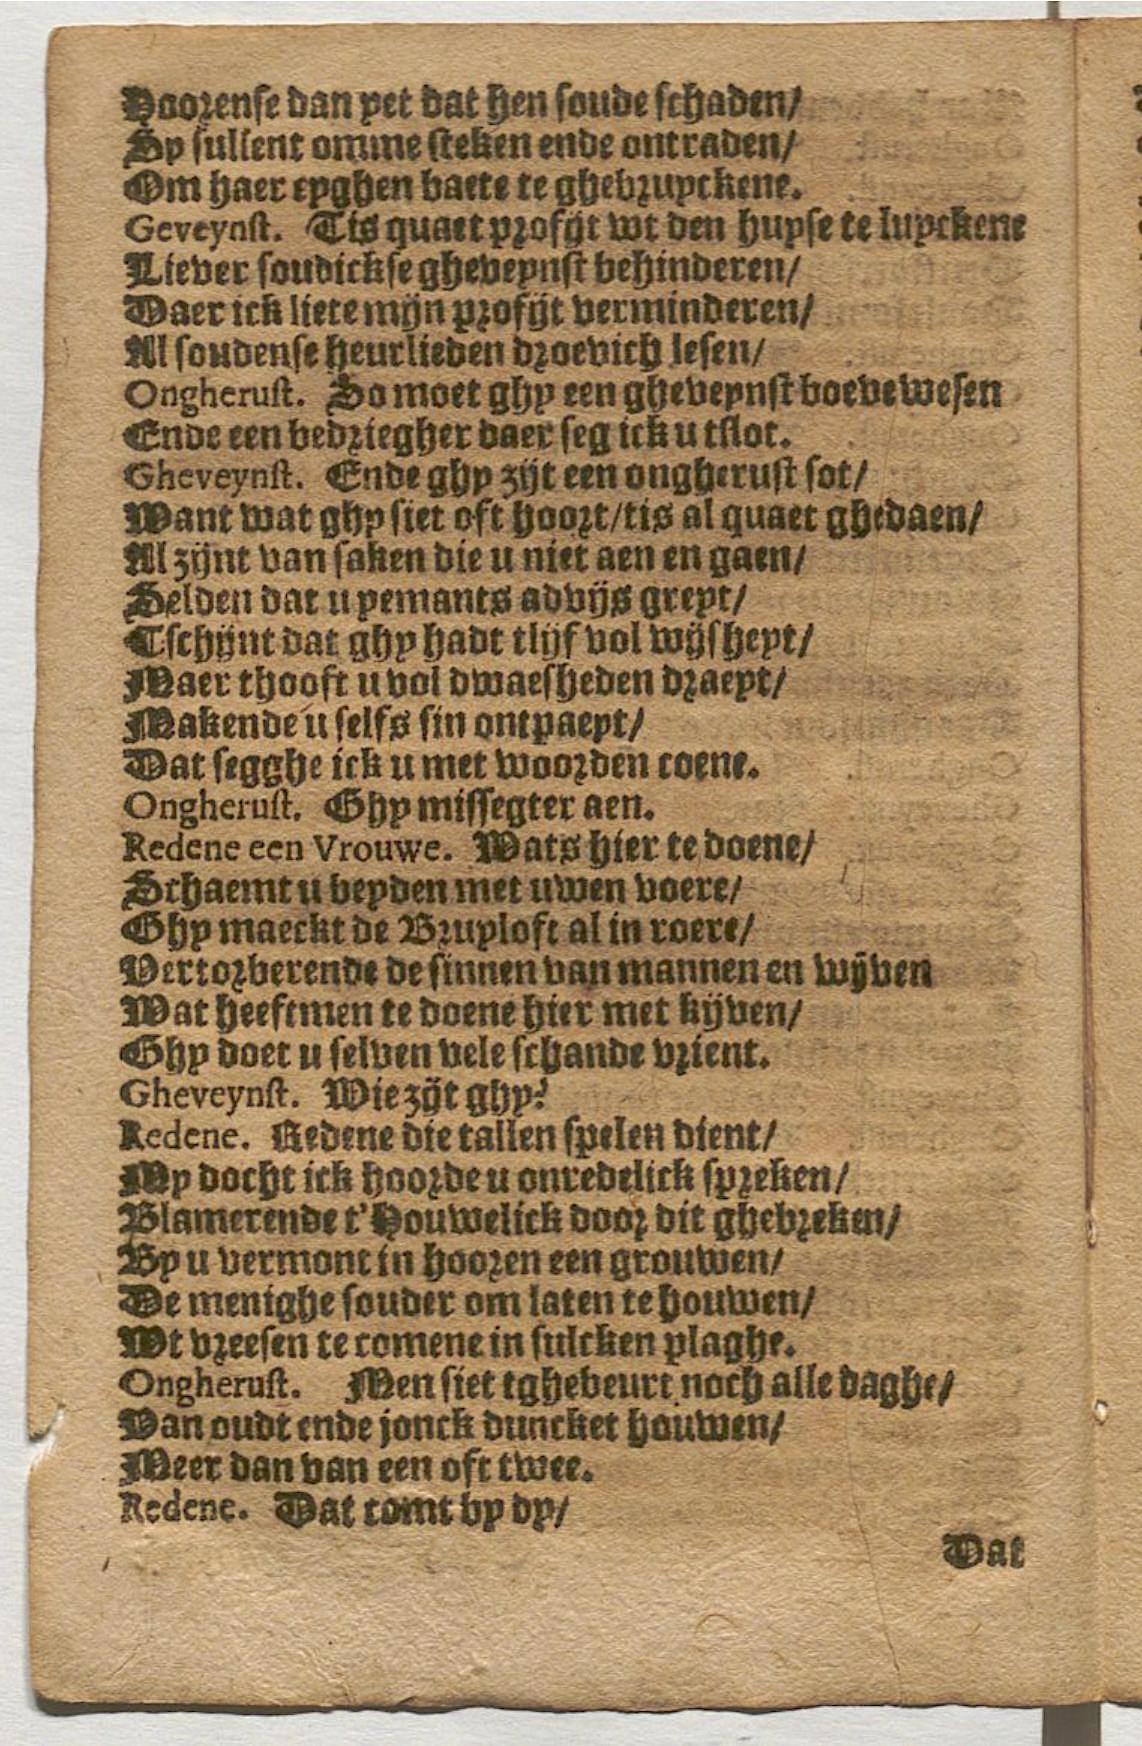 Hoorense dan yet dat hen soude schaden/
Sy sullent omme steken ende ontraden/
Om haer eyghen baete te ghebruyckene.
Geveynst. Tis quaet profijt wt den huyse te luyckene
Liever soudickse gheveynst behinderen/
Daer ick liete mijn profijt verminderen/
Al soudense heurlieden droevich lesen/
Ongherust. So moet ghy een gheveynst boeve wesen
Ende een bedriegher daer seg ick u tslot.
Gheveynst. Ende ghy zijt een ongherust sot/
Want wat ghy siet oft hoort/tis al quaet ghedaen/
Al zijnt van saken die u niet aen en gaen/
Selden dat u yemants advijs greyt/
Tschijnt dat ghy hadt tlijf vol wijsheyt/
Maer thooft u vol dwaesheden draeyt/
Makende u selfs sin ontpaeyt/
Dat segghe ick u met woorden coene.
Ongherust. Ghy missegter aen.
Redene een Vrouwe. Wats hier te doene/
Schaemt u beyden met uwen voere/
Ghy maeckt de Bruyloft al in roere/
Vertorberende de sinnen van mannen en wijven
Wat heeftmen te doene hier met kijven/
Ghy doet u selven vele schande vrient.
Gheveynst. Wie zijt ghy?
Redene. Redene die tallen spelen dient/
My docht ick hoorde u onredelick spreken/
Blamerende t'Houwelick door dit ghebreken/
By u vermont in hooren een grouwen/
De menighe souder om laten te houwen/
Wt vreesen te comene in sulcken plaghe.
Ongherust. Men siet tghebeurt noch alle daghe/
Van oudt ende jonck duncket houwen/
Meer dan van een oft twee.
Redene. Dat comt by dy/
Dat